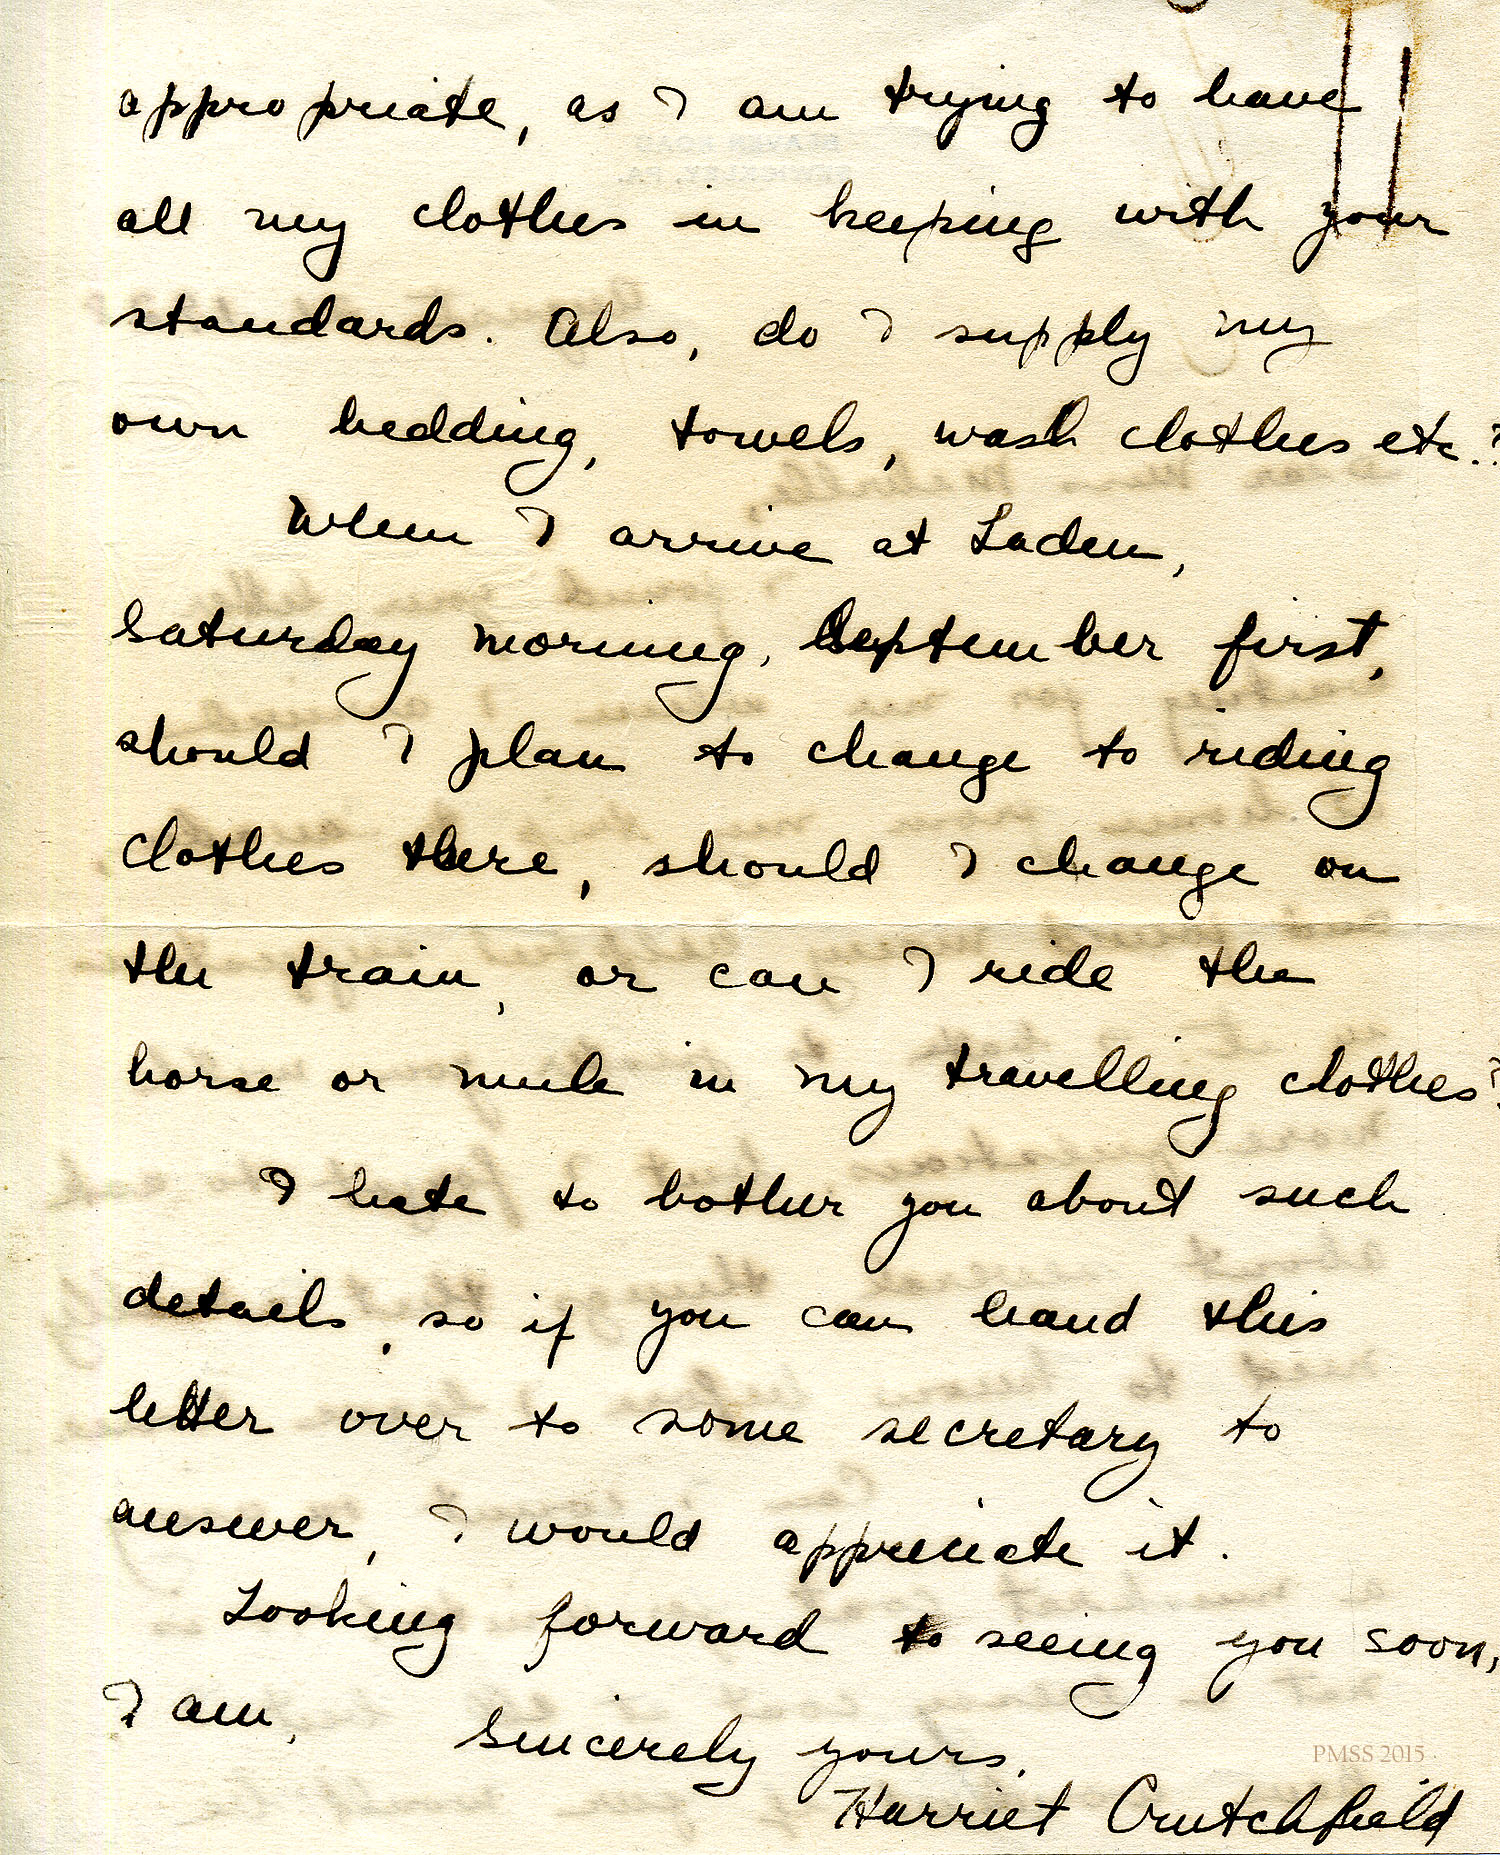 appropriate, as I am trying to have
all my clothes in keeping with your
standards. Also, do I supply my
own bedding, towels, wash clothes etc.?
When I arrive at Laden,
Saturday morning, September first,
should I plan to change to riding
clothes there, should I change on
the train, or can I ride the
horse or mule in my travelling clothes?
I hate to bother you about such
details, so if you can hand this
letter over to some secretary to
answer, I would appreciate it.
Looking forward to seeing you soon,
I am,
Sincerely yours,
Harriet Crutchfield
PMSS 2015